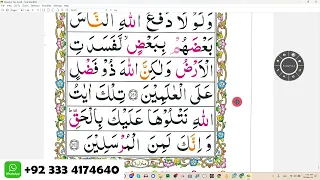 وَلَوْ لَا دَفْعُ اللّٰهِ النَّاسَ
بَعْضَهُمْ بِبَعْضٍ لَّفَسَدَتِ
الْاَرْضُ وَلٰكِنَّ اللّٰهَ ذُوْ فَضْلٍ
عَلَى الْعٰلَمِيْنَ تِلْكَ اٰيٰتُ
اللّٰهِ نَتْلُوْهَا عَلَيْكَ بِالْحَقِّ
وَاِنَّكَ لَمِنَ الْمُرْسَلِيْنَ
+92 333 4174640